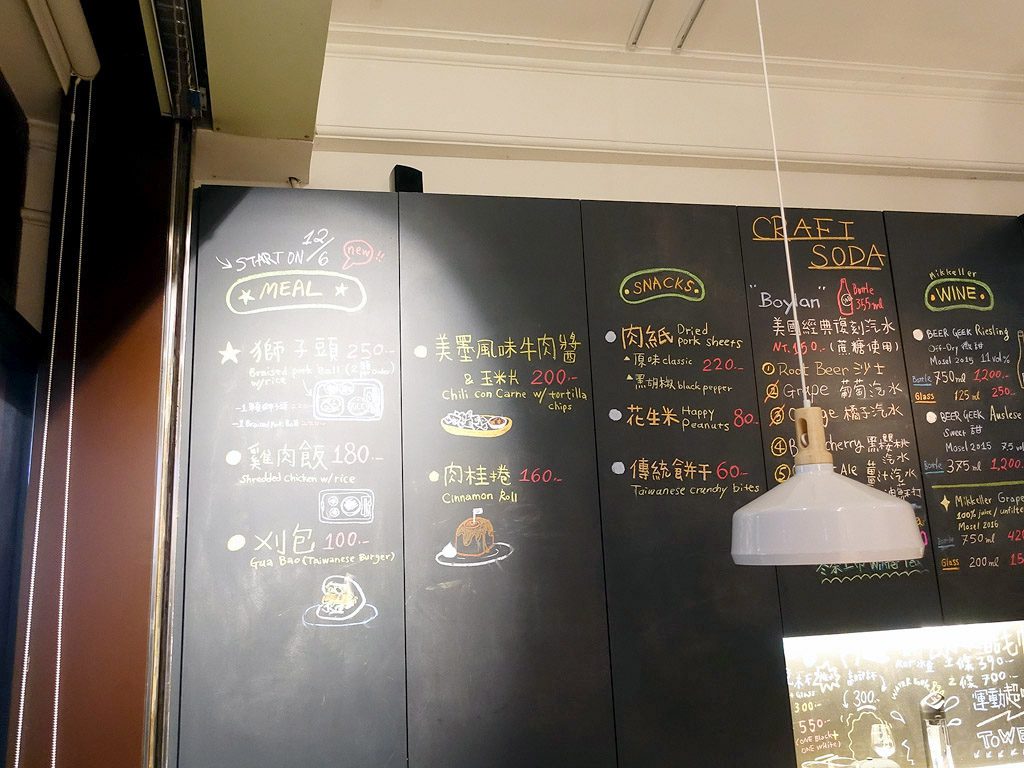 START ON 12/6 new!!
MEAL
獅子頭 250.-
Braised pork Ball (2
w/rice
雞肉飯 180.-
Shredded chicken w/rice
刈包 100.-
Gua Bao (Taiwanese Burger)
美墨風味牛肉醬
& 玉米片 200.-
Chili con Carne w/ tortilla
chips
肉桂捲 160.-
Cinnamon Roll
SNACKS
肉紙 Dried pork sheets
原味 classic 220.-
黑胡椒 black pepper
花生米 Happy Peanuts 80.-
傳統餅干 60.-
Taiwanese crunchy bites
CRAFT
SODA
"Boylan" Bottle 355ml
美國經典復刻汽水
(蔗糖使用)
① Root Beer 沙士
② Grape 葡萄汽水
橘子汽水
④ cherry 黑櫻桃
汽水
⑤ Ale 薑汁汽水
Mikkeller
WINE
BEER GEEK Riesling
Off-Dry
Mosel 2015 11vol%
Bottle 750ml 1,200.-
Glass 125ml 250.-
BEER GEEK Auslese
Sweet 甜
Mosel 2015 7.5
Bottle 375ml 1,200.-
Mikkeller Grape
100% juice / unfilte
Mosel 2016
Bottle 750ml
Glass 200ml
300.-
550.-
(ONE Black +
ONE White)
300.-
390.-
700.-